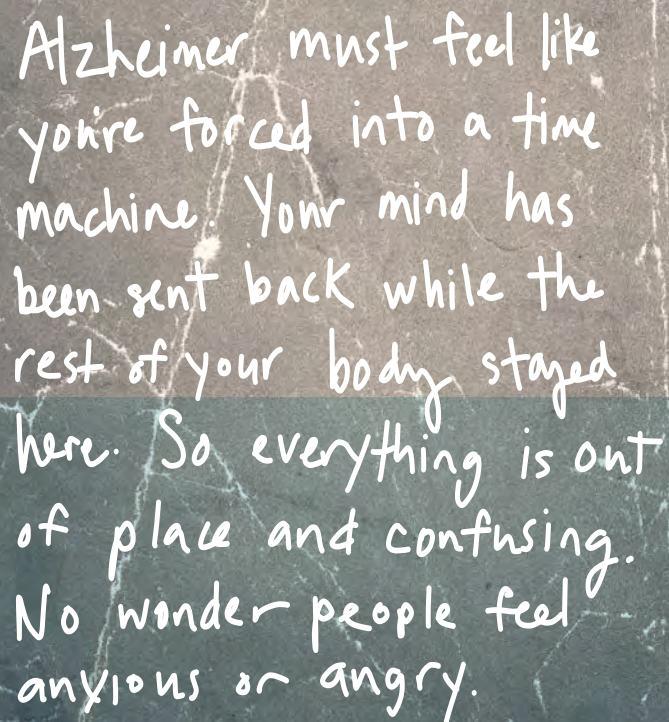 Alzheimer must feel like
you're forced into a time
machine. Your mind has
been sent back while the
rest of your body stayed
here. So everything is out
of place and confusing.
No wonder people feel
anxious or angry.